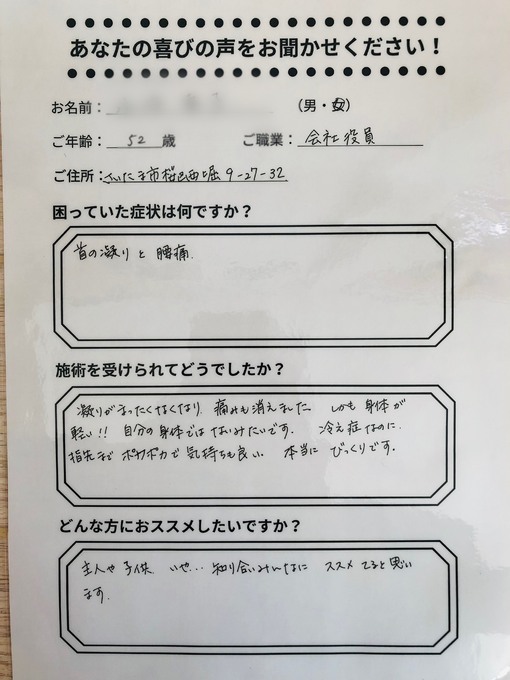 あなたの喜びの声をお聞かせください！
お名前： （男・女）
ご年齢： 52 歳 ご職業： 会社役員
ご住所： さいたま市桜区西堀 9-27-32
困っていた症状は何ですか？
首の凝り と 腰痛.
施術を受けられてどうでしたか？
凝りがまったくなくなり. 痛みも消えました しかも 身体が
軽い!! 自分の身体では ないみたいです. 冷え症なのに.
指先まで ポカポカで 気持ちも良い. 本当に びっくりです.
どんな方におススメしたいですか？
主人や 子供. いや… 知り合いみんなに ススメ てると 思い
ます.